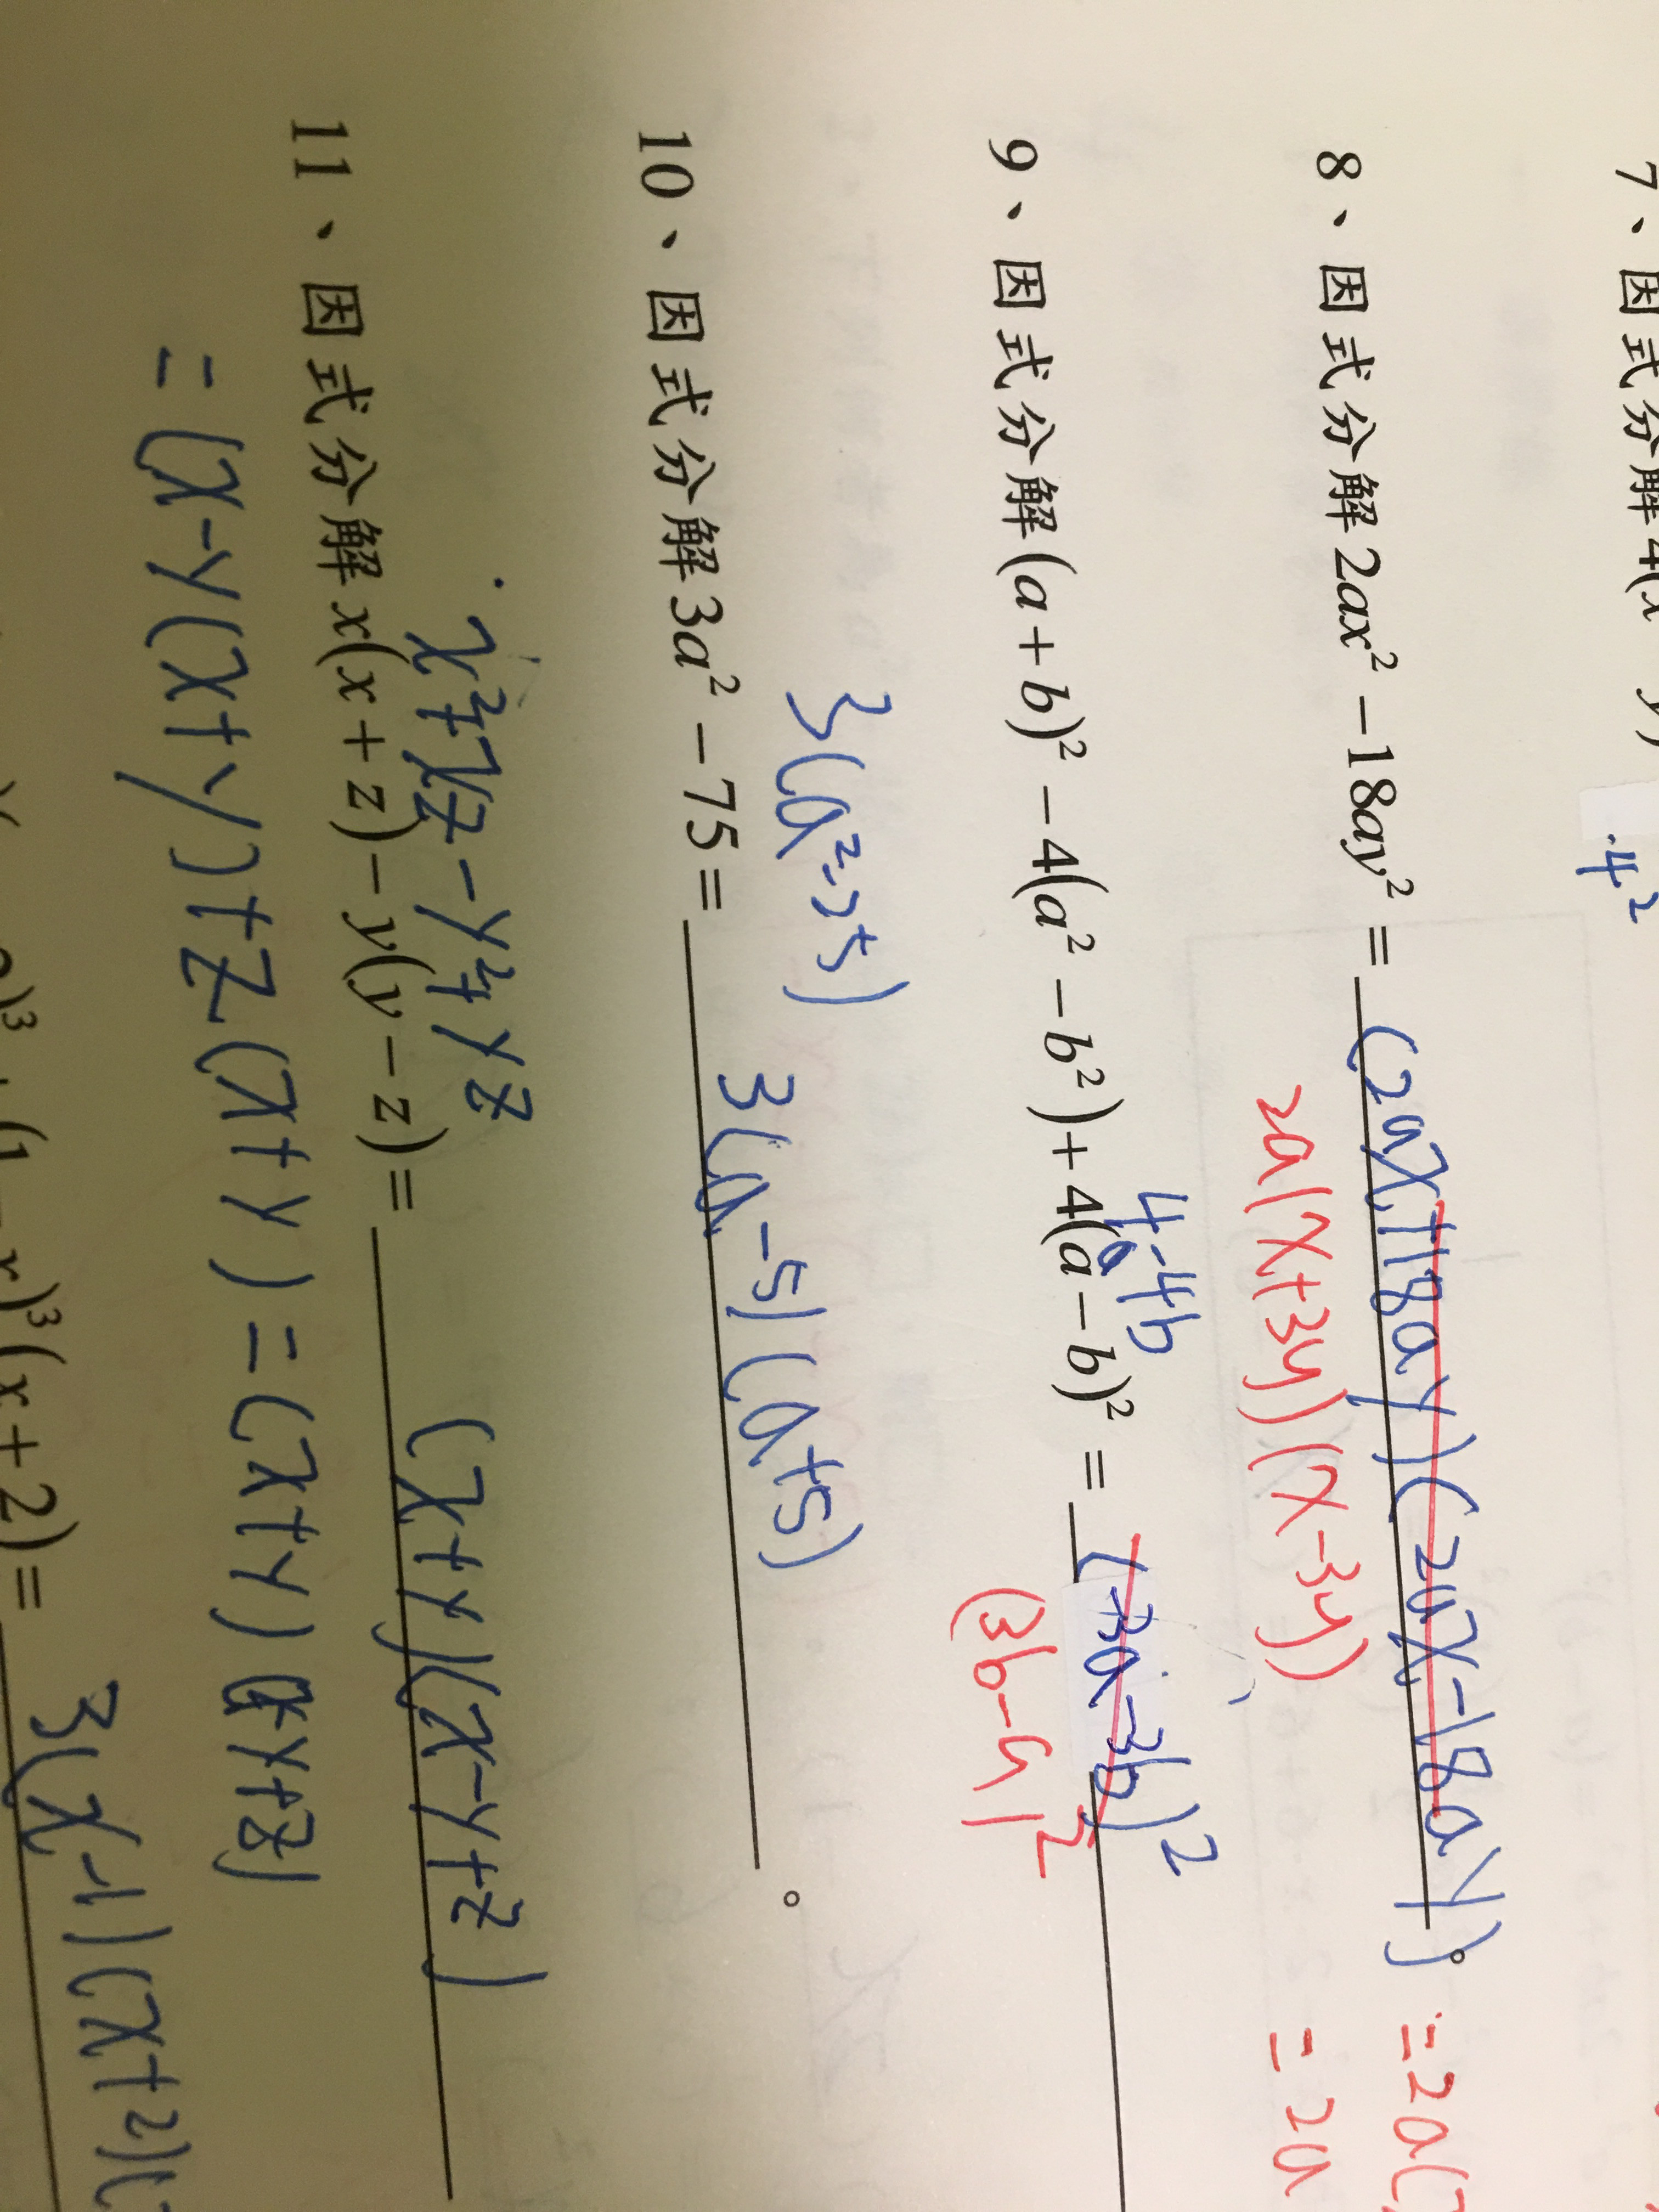 7、因式分解4(x y)
.4²
8、因式分解2ax²－18ay²＝(2ax+18ay)(2ax-18ay)。=2a(
2a(x+3y)(x-3y) =2a
4a-4b
9、因式分解(a＋b)²－4(a²－b²)＋4(a－b)²＝(3a-3b)²
(3b-a)²
3(a²-25)
10、因式分解3a²－75＝3(a-5)(a+5)。
x²+xz-y²+yz
11、因式分解x(x＋z)－y(y－z)＝(x+y)(x-y+z)
=(x-y(x+y)+z(x+y)=(x+y)(x-y+z)
)³+(1－x)³(x＋2)＝3(x-1)(x+2)(